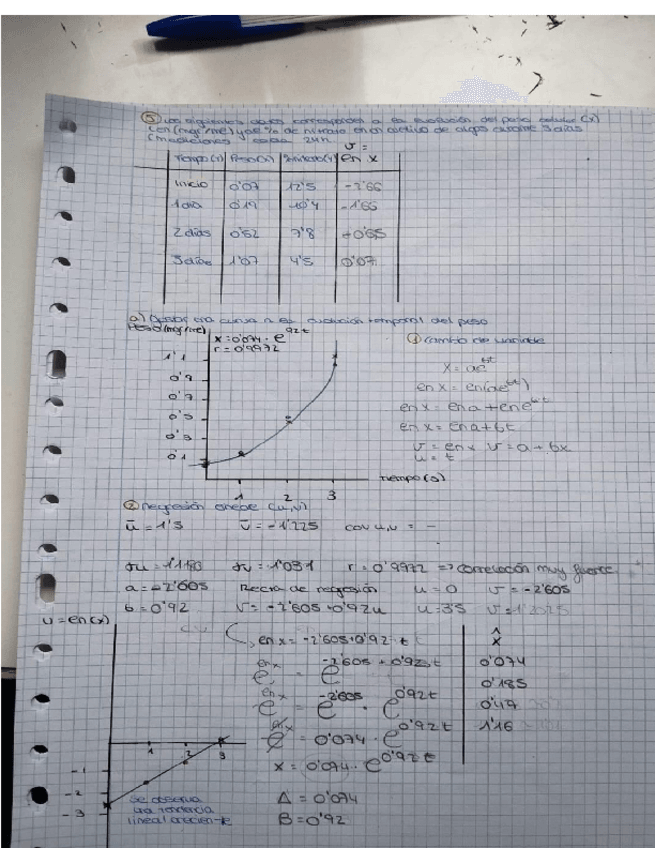 ⑤ Los siguientes datos corresponden a la evolución del peso celular (x)
(en (mgr/ml) y el % de nitrato en un cultivo de algas durante 3 días
(mediciones cada 24h
Tiempo (t) Peso (x) Nitrato (y) v = ln x
Inicio 0'07 12'5 -2'66
1 día 0'19 10'4 -1'66
2 días 0'52 7'8 -0'65
3 días 1'07 4'5 0'07
a) Ajustar una curva a la evolución temporal del peso
Peso (mgr/ml)
x = 0'074 · e^0'92t
r = 0'9972
1'1
0'9
0'7
0'5
0'3
0'1
1 2 3
Tiempo (d)
① cambio de variable
x = ae^bt
ln x = ln(ae^bt)
ln x = ln a + ln e^bt
ln x = ln a + bt
v = ln x v = a + bx
u = t
② Regresión lineal (u,v)
ū = 1'5 v̄ = -1'225 cov u,v = -
σu = 1'1180 σv = 1'031 r = 0'9972 => correlación muy fuerte
a = -2'605 Recta de regresión u = 0 v = -2'605
b = 0'92 v = -2'605 + 0'92u u = 3'5
v = ln(x)
ln x = -2'605 + 0'92 · t
e^ln x = e^-2'605 + 0'92·t
e^ln x = e^-2'605 · e^0'92t
e^ln x = 0'074 · e^0'92t
x = 0'074 · e^0'92t
A = 0'074
B = 0'92
x̂
0'074
0'185
0'47
1'16
1 2 3
-1
-2
-3
Se observa
una tendencia
lineal creciente